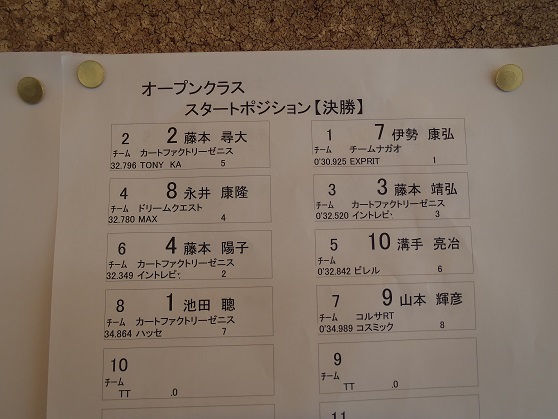 オープンクラス
スタートポジション【決勝】
2 2 藤本 尋大
チーム カートファクトリーゼニス
32.796 TONY KA 5
1 7 伊勢 康弘
チーム チームナガオ
0'30.925 EXPRIT 1
4 8 永井 康隆
チーム ドリームクエスト
32.780 MAX 4
3 3 藤本 靖弘
チーム カートファクトリーゼニス
0'32.520 イントレピ 3
6 4 藤本 陽子
チーム カートファクトリーゼニス
32.349 イントレピ 2
5 10 溝手 亮冶
チーム
0'32.842 ビレル 6
8 1 池田 聰
チーム カートファクトリーゼニス
34.864 ハッセ 7
7 9 山本 輝彦
チーム コルサRT
0'34.989 コスミック 8
10
チーム
TT .0
9
チーム
TT .0
11